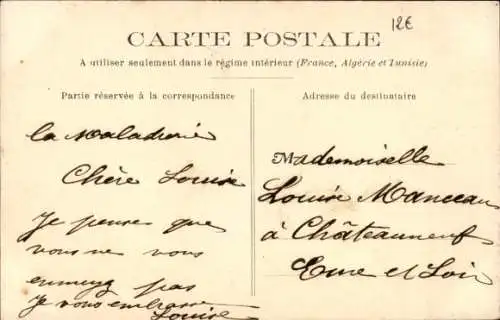 12€
CARTE POSTALE
A utiliser seulement dans le régime intérieur (France, Algérie et Tunisie)
Partie réservée à la correspondance
la Maladrerie
Chère Louise
Je pense que
vous ne vous
ennuyez pas
Je vous embrasse
Louise
Adresse du destinataire
Mademoiselle
Louise Manceau
à Châteauneuf
Eure et Loir